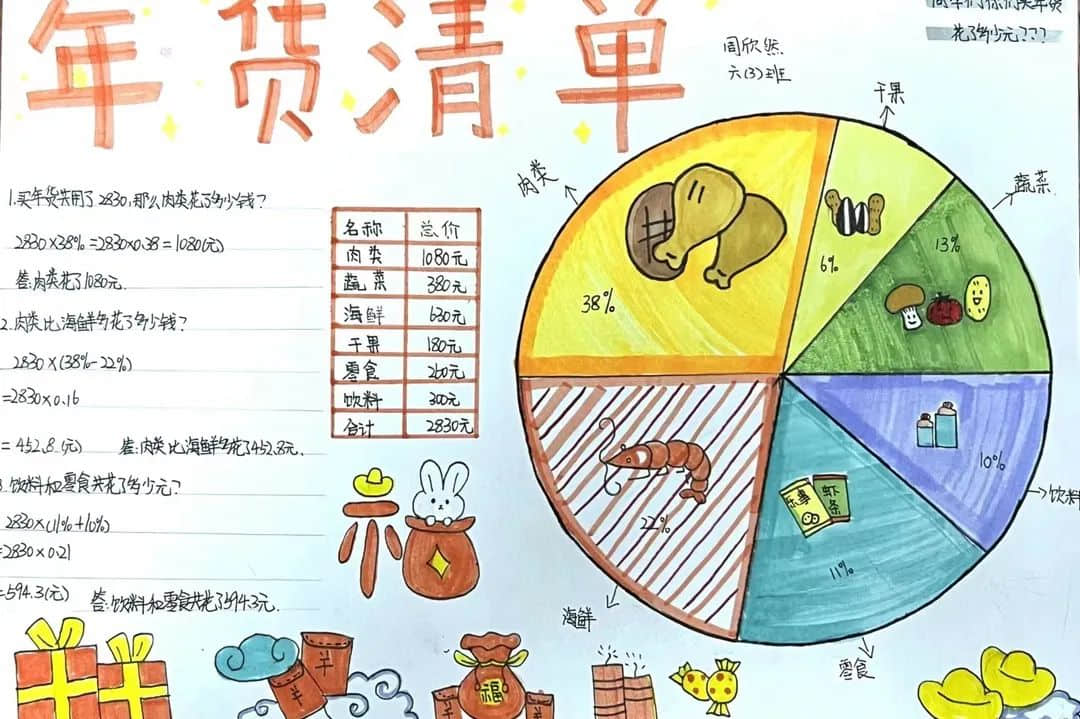 年货清单
花了多少元???
周欣然
六(3)班
1.买年货共用了2830,那么肉类花了多少钱?
2830×38%=2830×0.38=1080(元)
答:肉类花了1080元.
2.肉类比海鲜多花了多少钱?
2830×(38%-22%)
=2830×0.16
=452.8(元) 答:肉类比海鲜多花了452.8元.
饮料和零食共花了多少元?
2830×(11%+10%)
=2830×0.21
=594.3(元) 答:饮料和零食共花了594.3元.
名称 总价
肉类 1080元
蔬菜 380元
海鲜 630元
干果 180元
零食 260元
饮料 300元
合计 2830元
肉类
38%
干果
6%
蔬菜
13%
饮料
10%
零食
11%
乐事
虾条
海鲜
22%
福